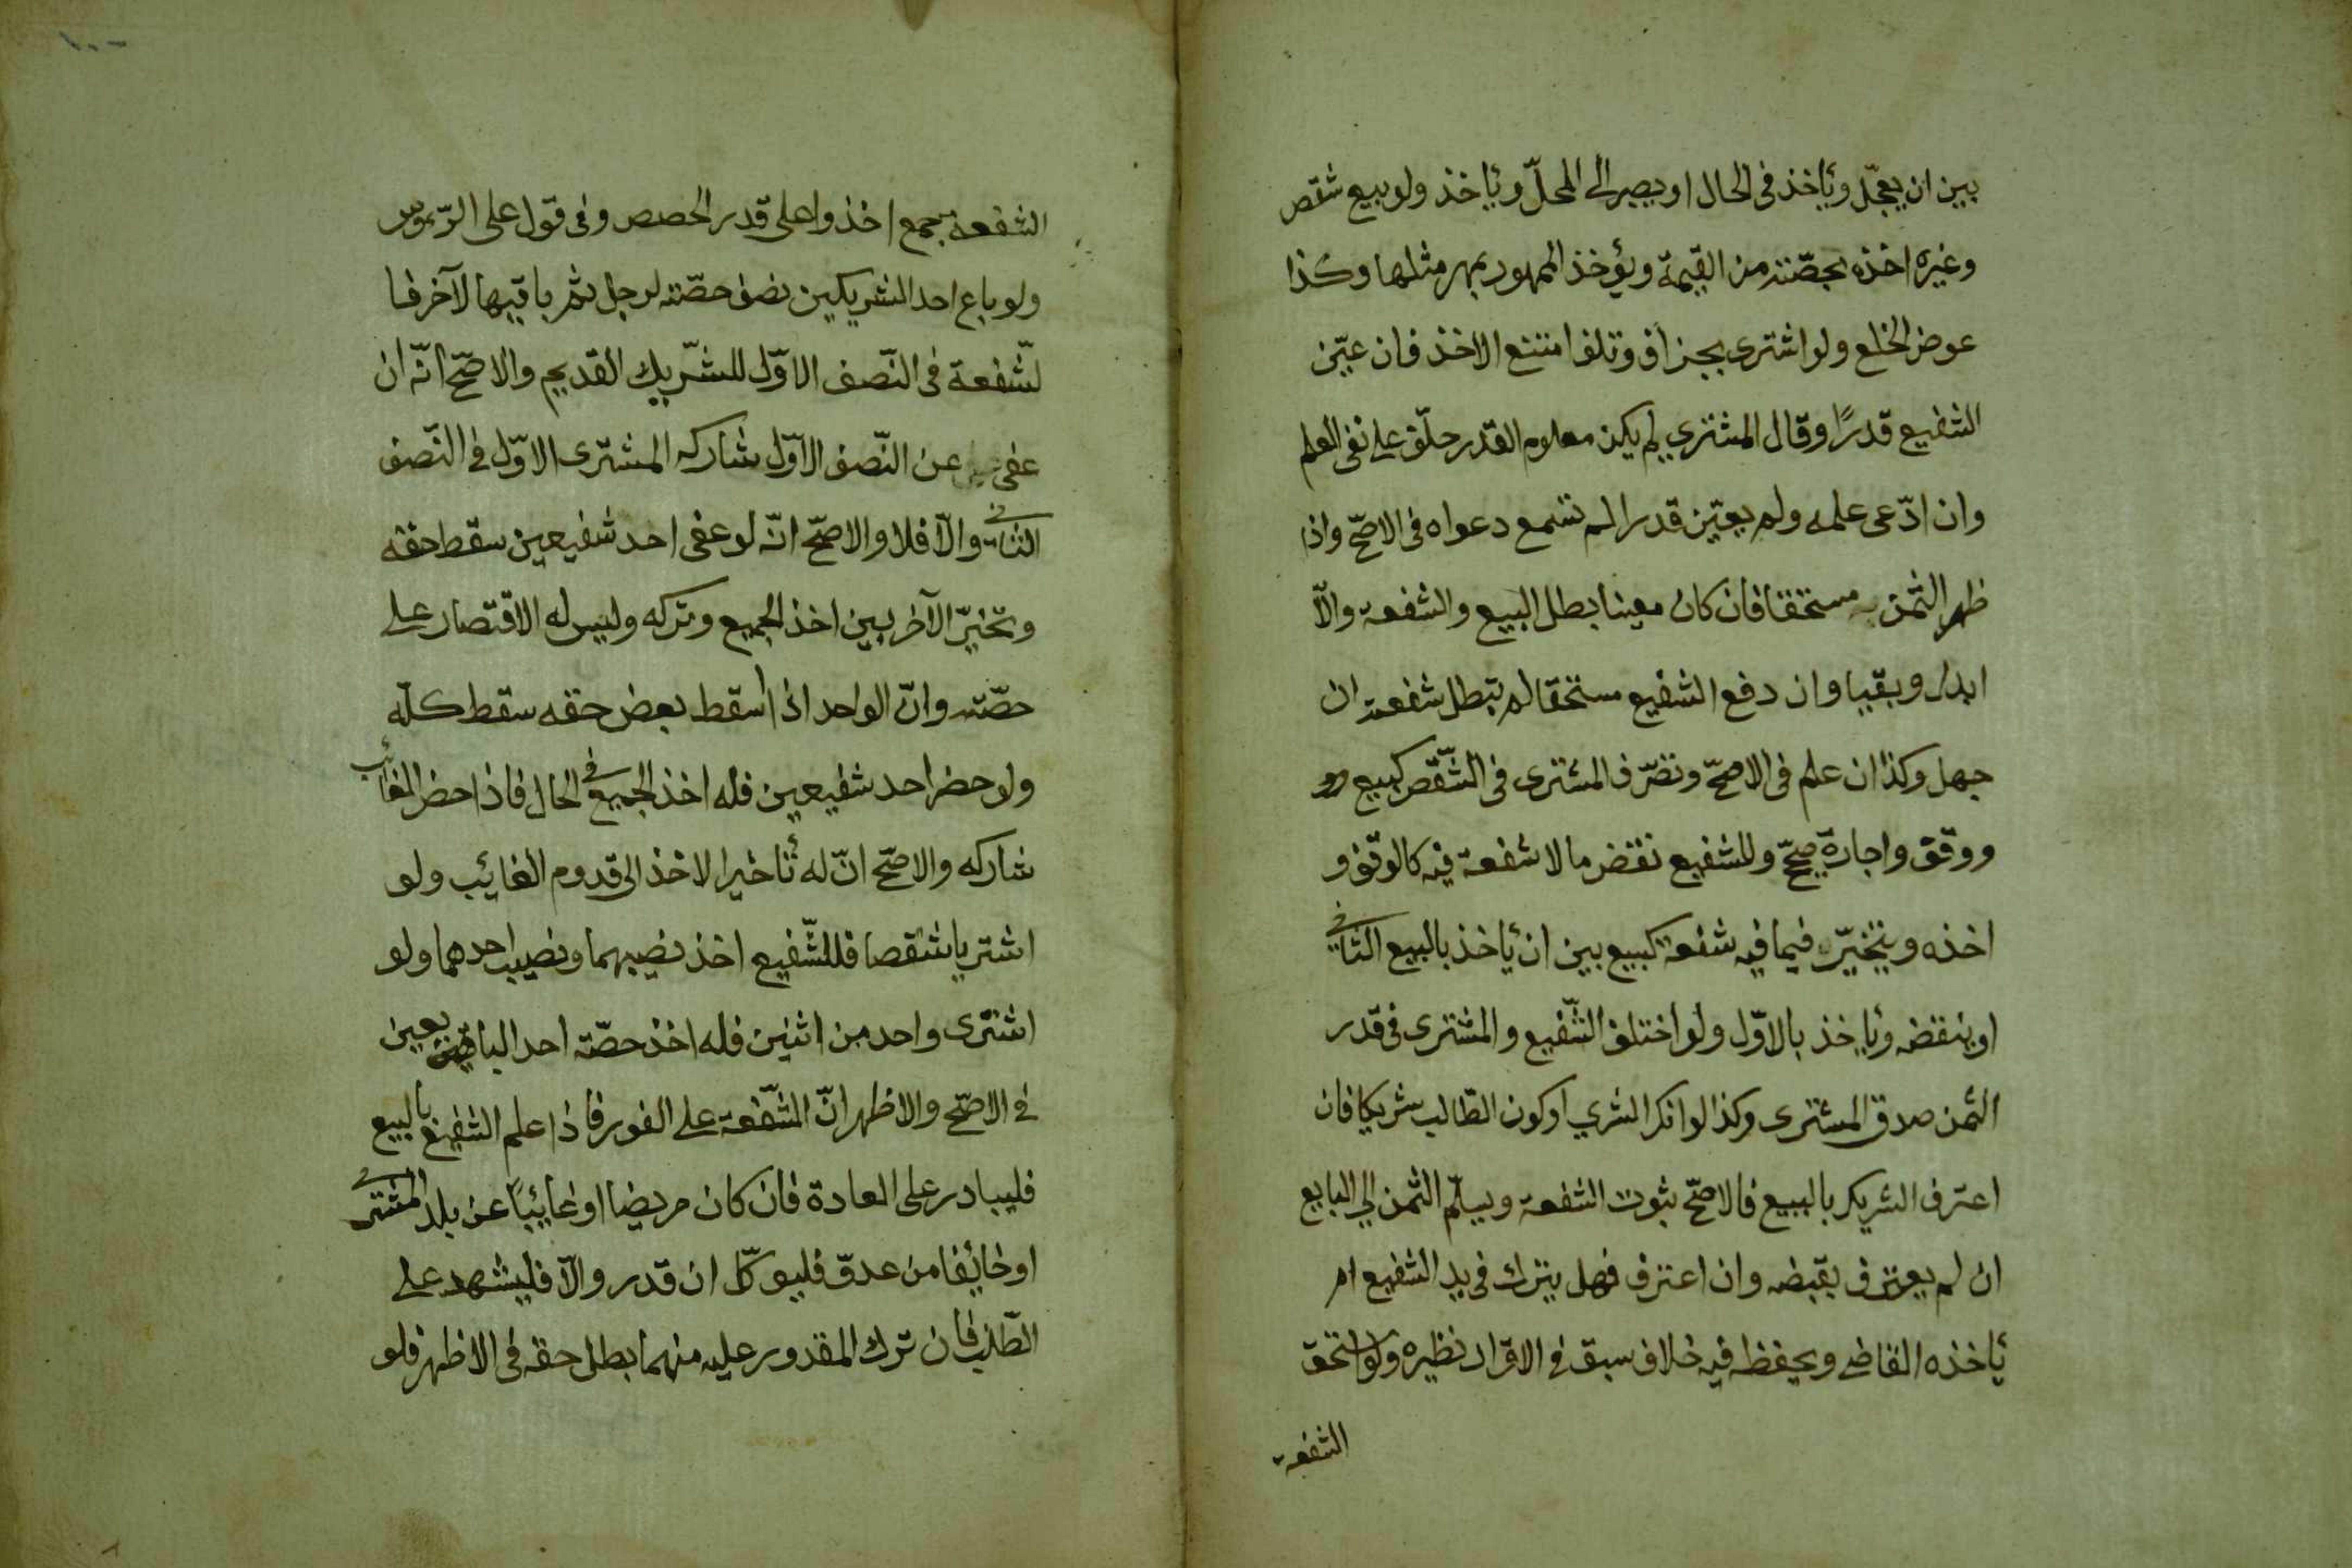 بين ان يعجّل وياخذ فى الحال او يصبر الى المحلّ وياخذ ولو بيع شقص
وغيره اخذه بحصّته من القيمة ويؤخذ الممهور بمهر مثلها وكذا
عوض الخلع ولو اشترى بجزاف وتلف امتنع الاخذ فان عيّن
الشفيع قدرًا وقال المشتري لم يكن معلوم القدر حلّف على نفى العلم
وان ادّعى علمه ولم يعيّن قدرا لم تسمع دعواه فى الاصحّ واذا
ظهر الثمن مستحقا فان كان معينا بطل البيع والشفعة والّا
ابدل وبقيا وان دفع الشفيع مستحقا لم تبطل شفعته ان
جهل وكذا ان علم فى الاصحّ وتصرّف المشترى فى الشّقص كبيع
ووقف واجارة صحّيح وللشفيع نقض ما لا شفعة فيه كالوقف و
اخذه ويتخيّر فيما فيه شفعة كبيع بين ان ياخذ بالبيع الثانى
او ينقضه وياخذ بالاوّل ولو اختلف الشّفيع والمشترى فى قدر
الثمن صدق المشترى وكذا لو انكر الشري او كون الطّالب شريكا فان
اعترف الشريك بالبيع فالاصحّ ثبوت الشفعة ويسلّم الثمن الي البايع
ان لم يعترف بقبضه وان اعترف فهل يترك فى يد الشفيع ام
ياخذه القاضى ويحفظه فيه خلاف سبق فى الاقرار نظيره ولو استحق
الشفعة
١٠٠
الشفعة جمع اخذوا على قدر الحصص وفى قول على الرّءوس
ولو باع احد الشريكين نصف حصّته لرجل ثم باقيها لآخر فا
لشّفعة فى النّصف الاوّل للشّريك القديم والاصحّ انّه ان
عفى عن النّصف الاوّل شاركه المشترى الاوّل فى النّصف
الثانى والّا فلا والاصحّ انّه لو عفى احد شفيعين سقط حقه
وتخيّر الآخر بين اخذ الجميع وتركه وليس له الاقتصار على
حصّته وانّ الواحد اذا اسقط بعض حقه سقط كلّه
ولو حضر احد شفيعين فله اخذ الجميع فى الحال فاذا حضر الغائب
شاركه والاصحّ انّ له تاخير الاخذ الى قدوم الغائب ولو
اشتريا شقصا فللشّفيع اخذ نصيبهما ونصيب احدهما ولو
اشترى واحد من اثنين فله اخذ حصّة احد البايعين
فى الاصحّ والاظهر انّ الشّفعة على الفور فاذا علم الشفيع بالبيع
فليبادر على العادة فان كان مريضا او غايبًا عن بلد المشترى
او خائفا من عدوّ فليوكّل ان قدر والّا فليشهد على
الطّلب فان ترك المقدور عليه منهما بطل حقه فى الاظهر فلو